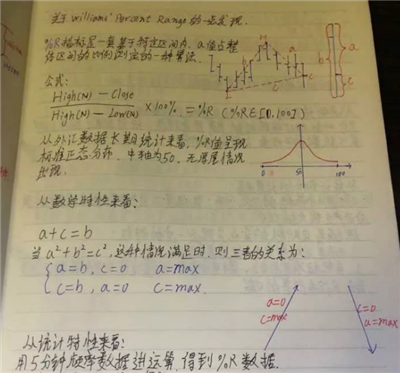 关于Williams' Percent Range的一点发现.
%R指标是一套基于特定区间内, a值占整
体区间的比例测定的一种算法.
公式:
High(N) - Close
High(N) - Low(N)
×100% = %R (%R∈[0,100])
H
a
c
L
b
a
c
从外汇数据长期统计来看, %R值呈现
标准正态分布, 中轴为50, 无厚尾情况
出现.
0
50
100
从数学特性来看:
a+c=b
当a²+b²=c², 这种情况满足时, 则三者的关系为:
a=b, c=0 a=max
c=b, a=0 c=max
a=0
c=max
c=0
a=max
从统计特性来看:
用5分钟频率数据进运算, 得到%R数据.